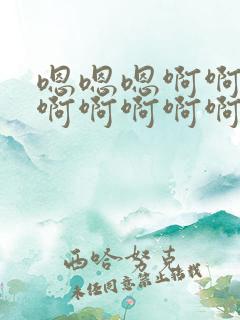 嗯嗯嗯啊啊
啊啊啊啊啊
西哈努克
未经同意禁止转载